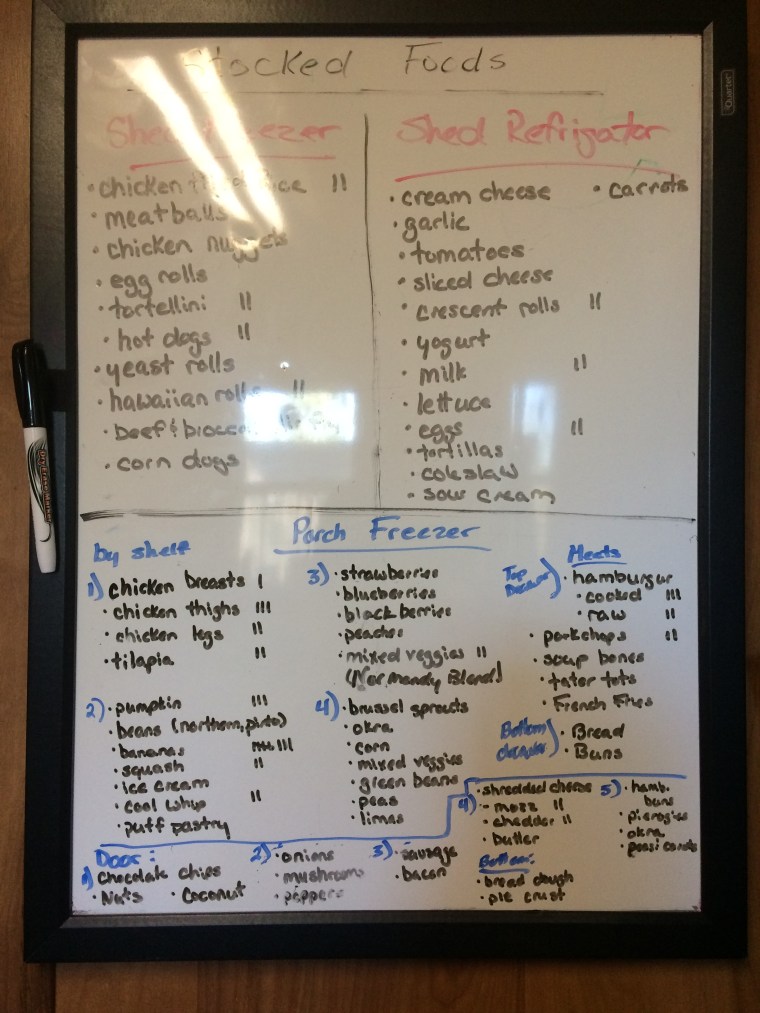 Stocked Foods
Shed Freezer
• chicken rice ||
• meatballs
• chicken nuggets
• egg rolls
• tortellini ||
• hot dogs ||
• yeast rolls
• hawaiian rolls ||
• beef & broccoli
• corn dogs
Shed Refrigator
• cream cheese • carrots
• garlic
• tomatoes
• sliced cheese
• crescent rolls ||
• yogurt
• milk ||
• lettuce
• eggs ||
• tortillas
• coleslaw
• sour cream
Porch Freezer
by shelf
1) chicken breasts |
• chicken thighs |||
• chicken legs ||
• tilapia ||
2) • pumpkin |||
• beans (northern, pinto)
• bananas |||| |||
• squash ||
• ice cream
• cool whip ||
• puff pastry
3) • strawberries
• blueberries
• blackberries
• peaches
• mixed veggies ||
(Normandy Blend)
4) • brussel sprouts
• okra
• corn
• mixed veggies
• green beans
• peas
• limas
Meats
Top Drawer) • hamburgur
• cooked |||
• raw ||
• porkchops ||
• soup bones
• tater tots
• French Fries
Bottom drawer) • Bread
• Buns
Door:
1) Chocolate chips
• Nuts • Coconut
2) • onions
• mushrooms
• peppers
3) • sausage
• bacon
4) • shredded cheese
- mozz ||
• chedder ||
• butter
Bottom:
• bread dough
• pie crust
5) • hamb.
buns
• pierogies
• okra
• peas; carrots
Quartet